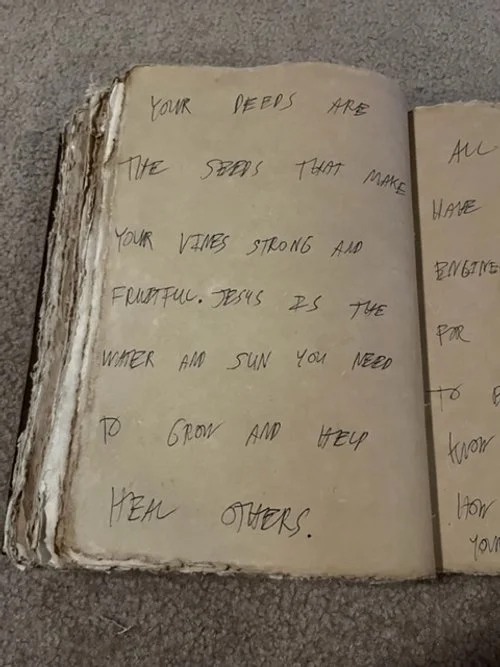 YOUR DEEDS ARE
THE SEEDS THAT MAKE
YOUR VINES STRONG AND
FRUITFUL. JESUS IS THE
WATER AND SUN YOU NEED
TO GROW AND HELP
HEAL OTHERS.
ALL
HAVE
ENGINE
FOR
TO
KNOW
HOW
YOUR